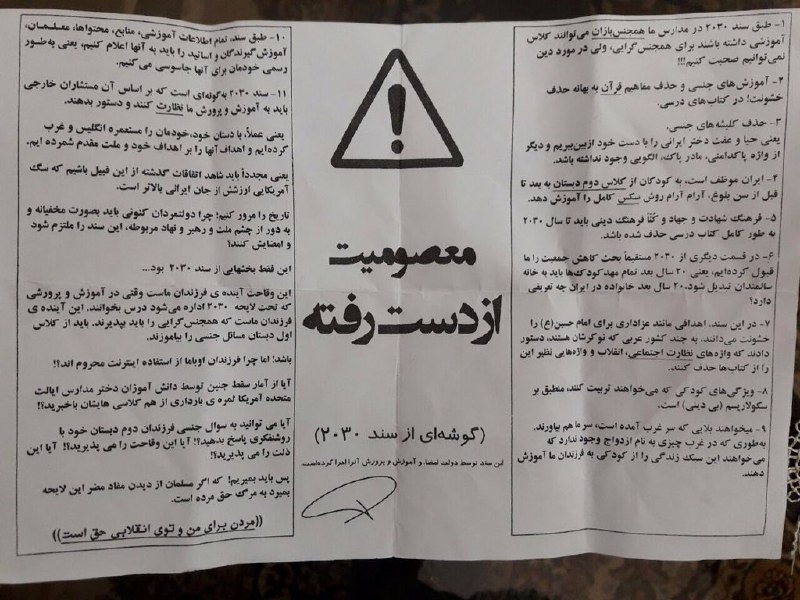 ۱- طبق سند ۲۰۳۰ در مدارس ما همجنس‌بازان می‌توانند کلاس
آموزشی داشته باشند برای همجنس‌گرایی، ولی در مورد دین
نمی‌توانیم صحبت کنیم!!!
۲- آموزش‌های جنسی و حذف مفاهیم قرآن به بهانه حذف
خشونت! در کتاب‌های درسی.
۳- حذف کلیشه‌های جنسی.
یعنی حیا و عفت دختر ایرانی را با دست خود ازبین‌ببریم و دیگر
از واژه پاکدامنی، مادر پاک، الگویی وجود نداشته باشد.
۴- ایران موظف است، به کودکان از کلاس دوم دبستان به بعد تا
قبل از سن بلوغ، آرام آرام روش سکس کامل را آموزش دهد.
۵- فرهنگ شهادت و جهاد و کُلّاً فرهنگ دینی باید تا سال ۲۰۳۰
به طور کامل کتاب درسی حذف شده باشد.
۶- در قسمت دیگری از ۲۰۳۰ مستقیماً بحث کاهش جمعیت را ما
قبول کرده‌ایم، یعنی ۲۰ سال بعد تمام مهد کودک‌ها باید به خانه
سالمندان تبدیل شود، ۲۰ سال بعد خانواده در ایران چه تعریفی
دارد؟
۷- در این سند، اهدافی مانند عزاداری برای امام حسین(ع) را
خشونت می‌دانند، به چند کشور عربی که نوکرشان هستند، دستور
دادند که واژه‌های نظارت اجتماعی، انقلاب و واژه‌هایی نظیر این
را از کتاب‌ها حذف کنند.
۸- ویژگی‌های کودکی که می‌خواهند تربیت کنند، منطبق بر
سکولاریسم (بی دینی) است.
۹- میخواهند بلایی که سر غرب آمده است، سر ما هم بیاورند.
به‌طوری که در غرب چیزی به نام ازدواج وجود ندارد که
می‌خواهند این سبک زندگی را از کودکی به فرزندان ما آموزش
دهند.
معصومیت
از دست رفته
(گوشه‌ای از سند ۲۰۳۰)
این سند توسط دولت امضاء و آموزش و پرورش آنرا اجرا کرده‌است.
۱۰- طبق سند، تمام اطلاعات آموزشی، منابع، محتواها، معلمان،
آموزش‌گیرندگان و اساتید را باید به آنها اعلام کنیم، یعنی به‌طور
رسمی خودمان برای آنها جاسوسی می کنیم.
۱۱- سند ۲۰۳۰ به‌گونه‌ای است که بر اساس آن مستشاران خارجی
باید به آموزش و پرورش ما نظارت کنند و دستور بدهند.
یعنی عملاً، با دستان خود،خودمان را مستعمره انگلیس و غرب
کرده‌ایم و اهداف آنها را بر اهداف خود و ملت مقدم شمرده ایم.
یعنی مجدداً باید شاهد اتفاقات گذشته از این قبیل باشیم که سگ
آمریکایی اوزشش از جان ایرانی بالاتر است.
تاریخ را مرور کنیم؛ چرا دولتمردان کنونی باید بصورت مخفیانه و
به دور از چشم ملت و رهبر و نهاد مربوطه، این سند را ملتزم شود
و امضایش کنند؟
این فقط بخشهایی از سند ۲۰۳۰ بود...
این وقاحت آینده ی فرزندان ماست وقتی در آموزش و پرورشی
که تحت لایحه ۲۰۳۰ اداره می‌شود درس بخوانند. این آینده ی
فرزندان ماست که همجنس‌گرایی را باید بپذیرند. باید از کلاس
اول دبستان مسائل جنسی را بیاموزند.
باشد! اما چرا فرزندان اوباما از استفاده اینترنت محروم اند؟!
آیا از آمار سقط جنین توسط دانش آموزان دختر مدارس ایالت
متحده آمریکا ثمره ی بارداری از هم کلاسی هایشان باخبرید؟!
آیا می توانید به سوال جنسی فرزندان دوم دبستان خود با
روشنفکری پاسخ بدهید؟! آیا این وقاحت را می پذیرید؟! آیا این
ذلت را می پذیرید؟!
پس باید بمیریم! که اگر مسلمان از دیدن مفاد مضر این لایحه
بمیرد به مرگ حق مرده است.
((مردن برای من و توی انقلابی حق است))